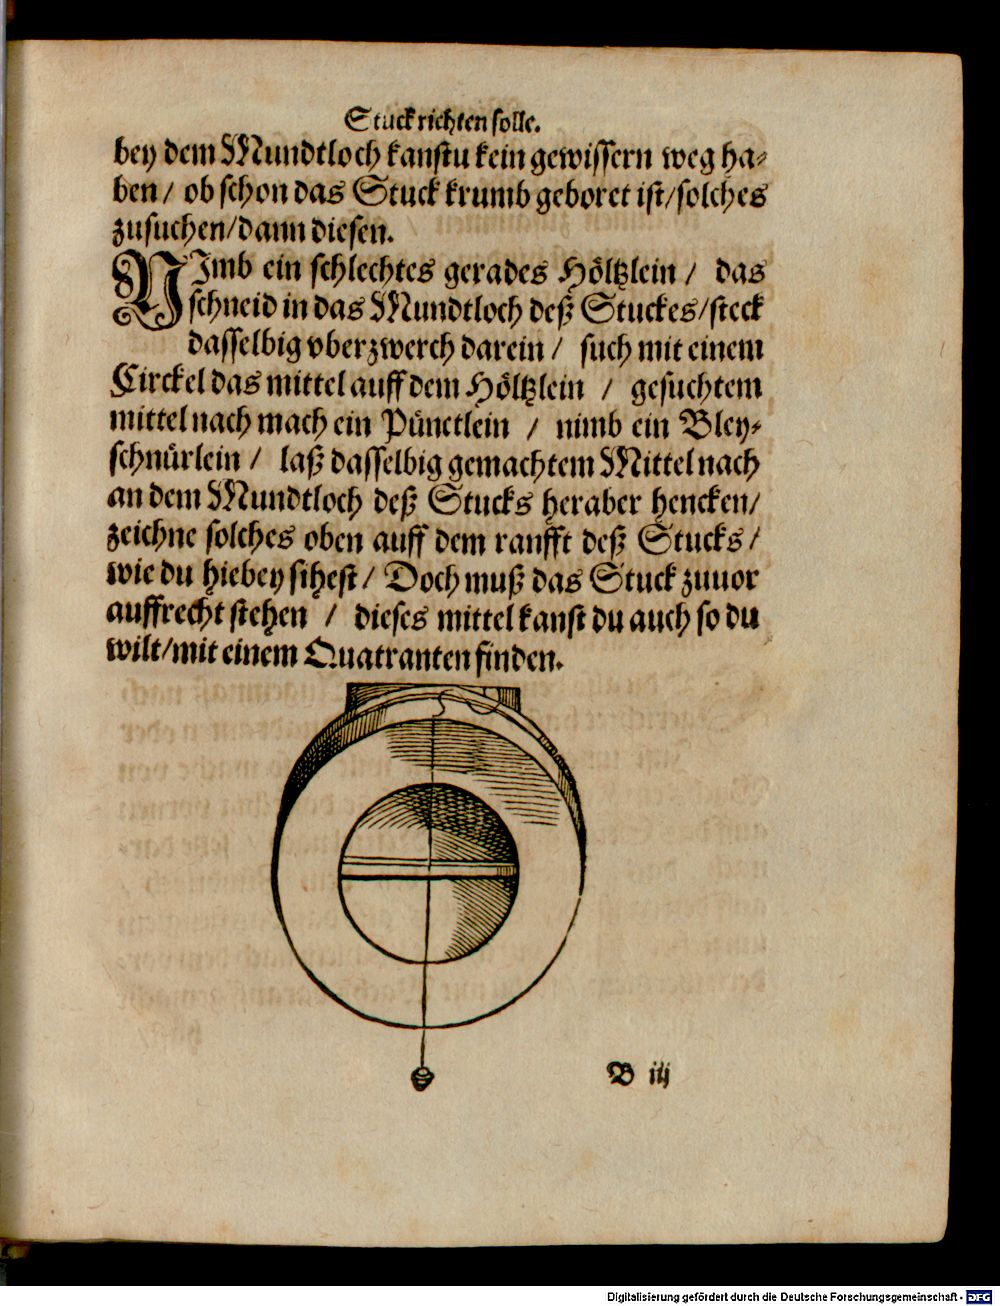 Stuck richten solle.
bey dem Mundtloch kanstu kein gewissern weg ha-
ben / ob schon das Stuck krumb geboret ist / solches
zusuchen / dann diesen.
NImb ein schlechtes gerades Höltzlein / das
schneid in das Mundtloch deß Stuckes / steck
dasselbig vberzwerch darein / such mit einem
Circkel das mittel auff dem Höltzlein / gesuchtem
mittel nach mach ein Pünctlein / nimb ein Bley-
schnürlein / laß dasselbig gemachtem Mittel nach
an dem Mundtloch deß Stucks heraber hencken /
zeichne solches oben auff dem ranfft deß Stucks /
wie du hiebey sihest / Doch muß das Stuck zuuor
auffrecht stehen / dieses mittel kanst du auch so du
wilt / mit einem Quatranten finden.
B iij
Digitalisierung gefördert durch die Deutsche Forschungsgemeinschaft - DFG